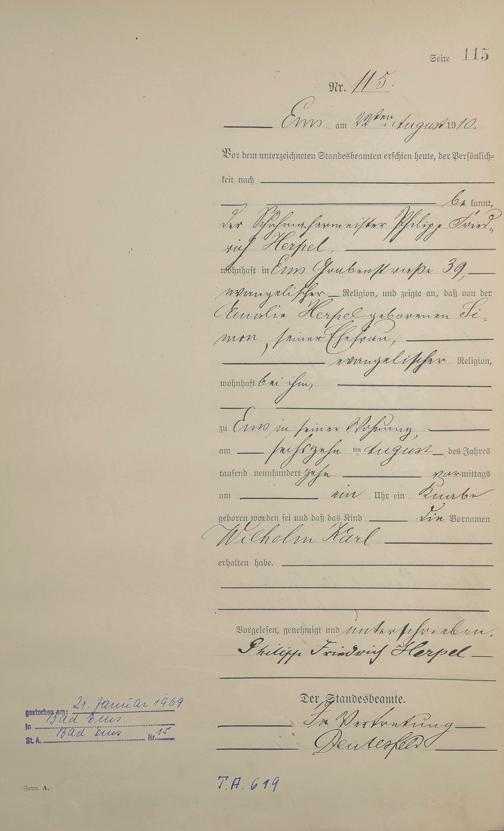 Seite 115
Nr. 115.
Ems am 22ten August 1910.
Vor dem unterzeichneten Standesbeamten erschien heute, der Persönlich-
keit nach
be kannt,
der Schuhmachermeister Philipp Fried-
rich Herpel,
wohnhaft in Ems Grabenstraße 39,
evangelischer Religion, und zeigte an, daß von der
Amalie Herpel geborenen Si-
mon, seiner Ehefrau,
evangelischer Religion,
wohnhaft bei ihm,
zu Ems, in seiner Wohnung,
am sechszehn ten August des Jahres
tausend neunhundert zehn vormittags
um ein Uhr ein Knabe
geboren worden sei und daß das Kind die Vornamen
Wilhelm Karl
erhalten habe.
Vorgelesen, genehmigt und unterschrieben.
Philipp Friedrich Herpel
Der Standesbeamte.
In Vertretung
gestorben am: 21. Januar 1969
in Bad Ems
St. A. Bad Ems Nr. 15
T.A. 619
Form. A.